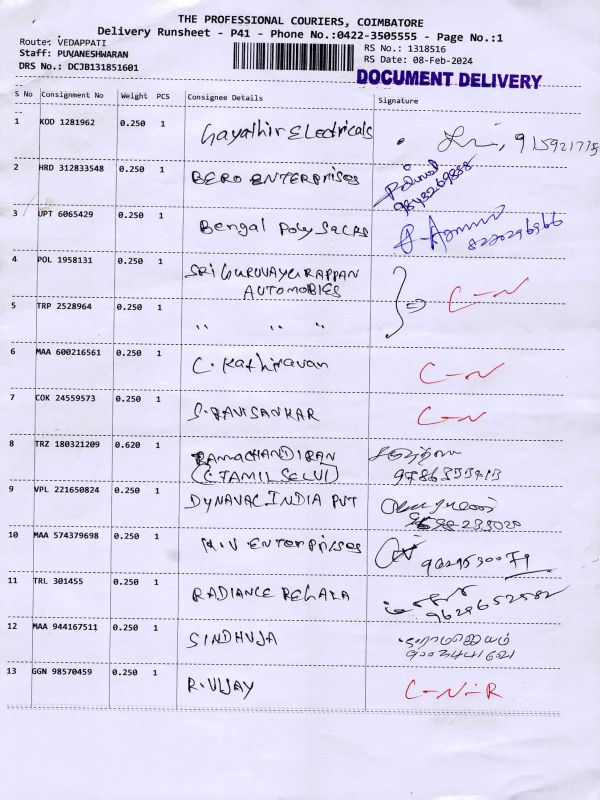 THE PROFESSIONAL COURIERS, COIMBATORE
Delivery Runsheet - P41 - Phone No.:0422-3505555 - Page No.:1
Route: VEDAPPATI
Staff: PUVANESHWARAN
DRS No.: DCJB131851601
RS No.: 1318516
RS Date: 08-Feb-2024
DOCUMENT DELIVERY
S No Consignment No Weight PCS Consignee Details Signature
1 KOD 1281962 0.250 1 Gayathir Electricals
2 HRD 312833548 0.250 1 BERO ENTERPRISES
3 UPT 6065429 0.250 1 Bengal Poly Sacks
4 POL 1958131 0.250 1 SRI GURUVAYURAPPAN
AUTOMOBILES C-N
5 TRP 2528964 0.250 1 " " "
6 MAA 600216561 0.250 1 C. Kathiravan C-N
7 COK 24559573 0.250 1 S. RAVISANKAR C-N
8 TRZ 180321209 0.620 1 RAMACHANDIRAN
(C. TAMIL SELVI)
9 VPL 221650824 0.250 1 DYNAVAC INDIA PVT
10 MAA 574379698 0.250 1 ENTERPRISES
11 TRL 301455 0.250 1 RADIANCE
12 MAA 944167511 0.250 1 SINDHUJA
13 GGN 98570459 0.250 1 R. VIJAY C-N-R